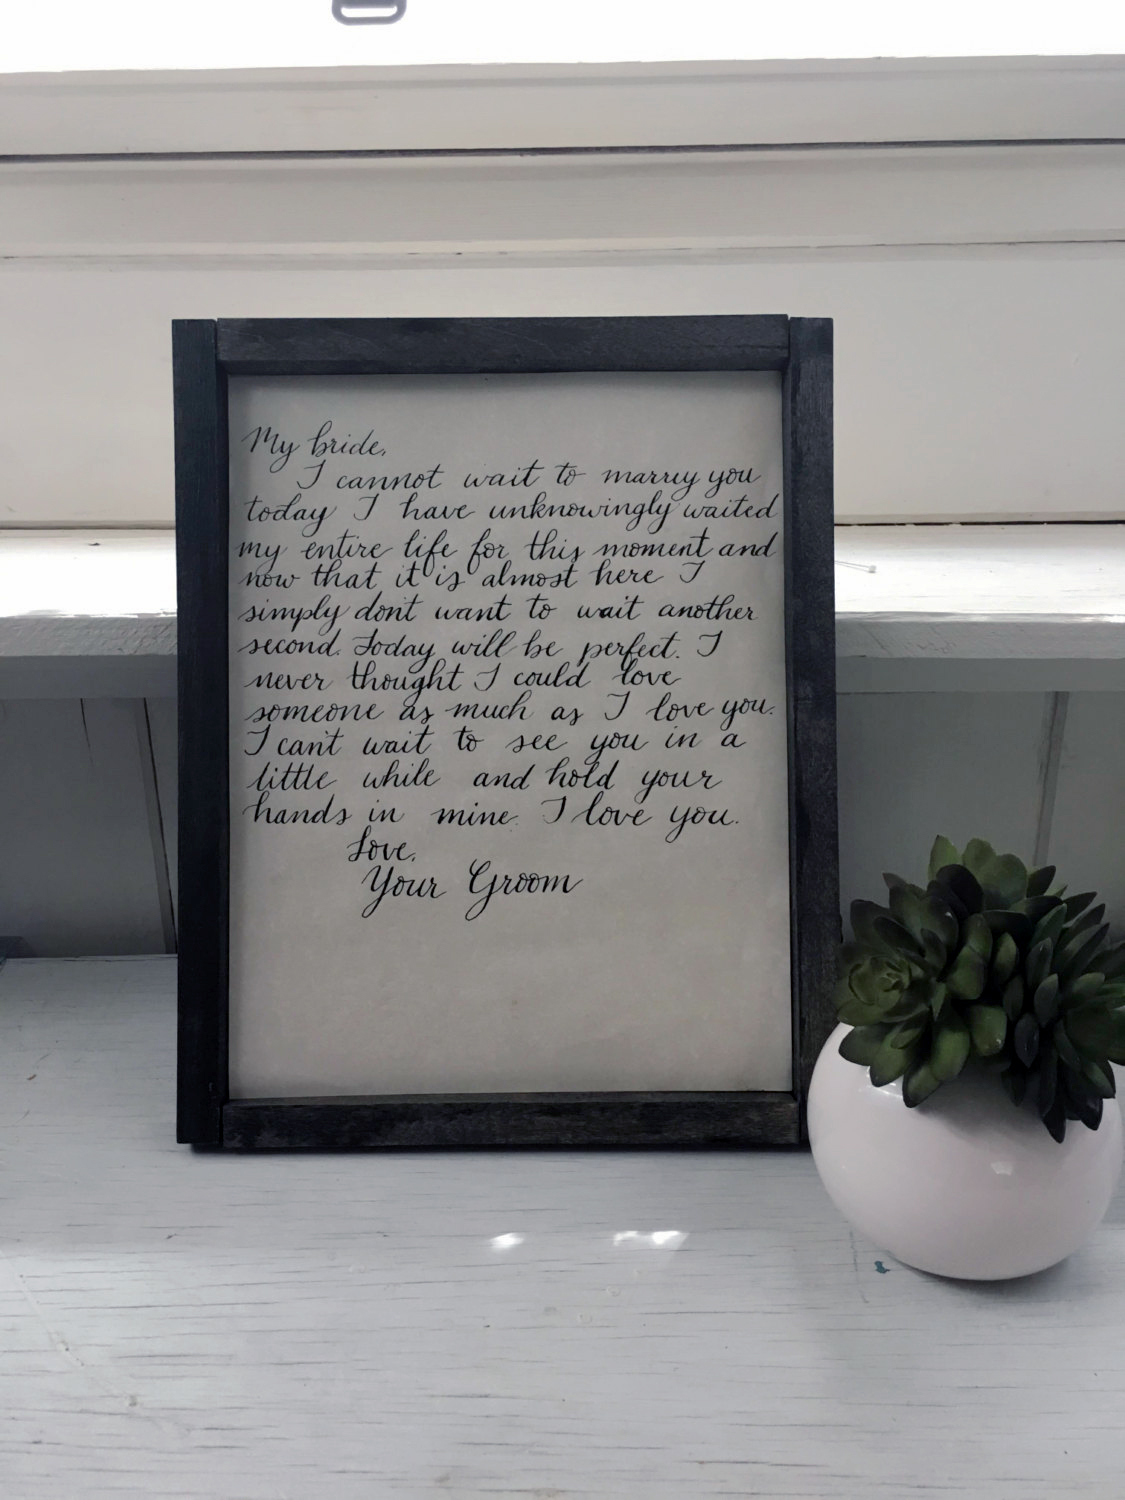 My bride,
I cannot wait to marry you
today I have unknowingly waited
my entire life for this moment and
now that it is almost here I
simply don't want to wait another
second. Today will be perfect. I
never thought I could love
someone as much as I love you.
I can't wait to see you in a
little while and hold your
hands in mine. I love you.
Love,
Your Groom